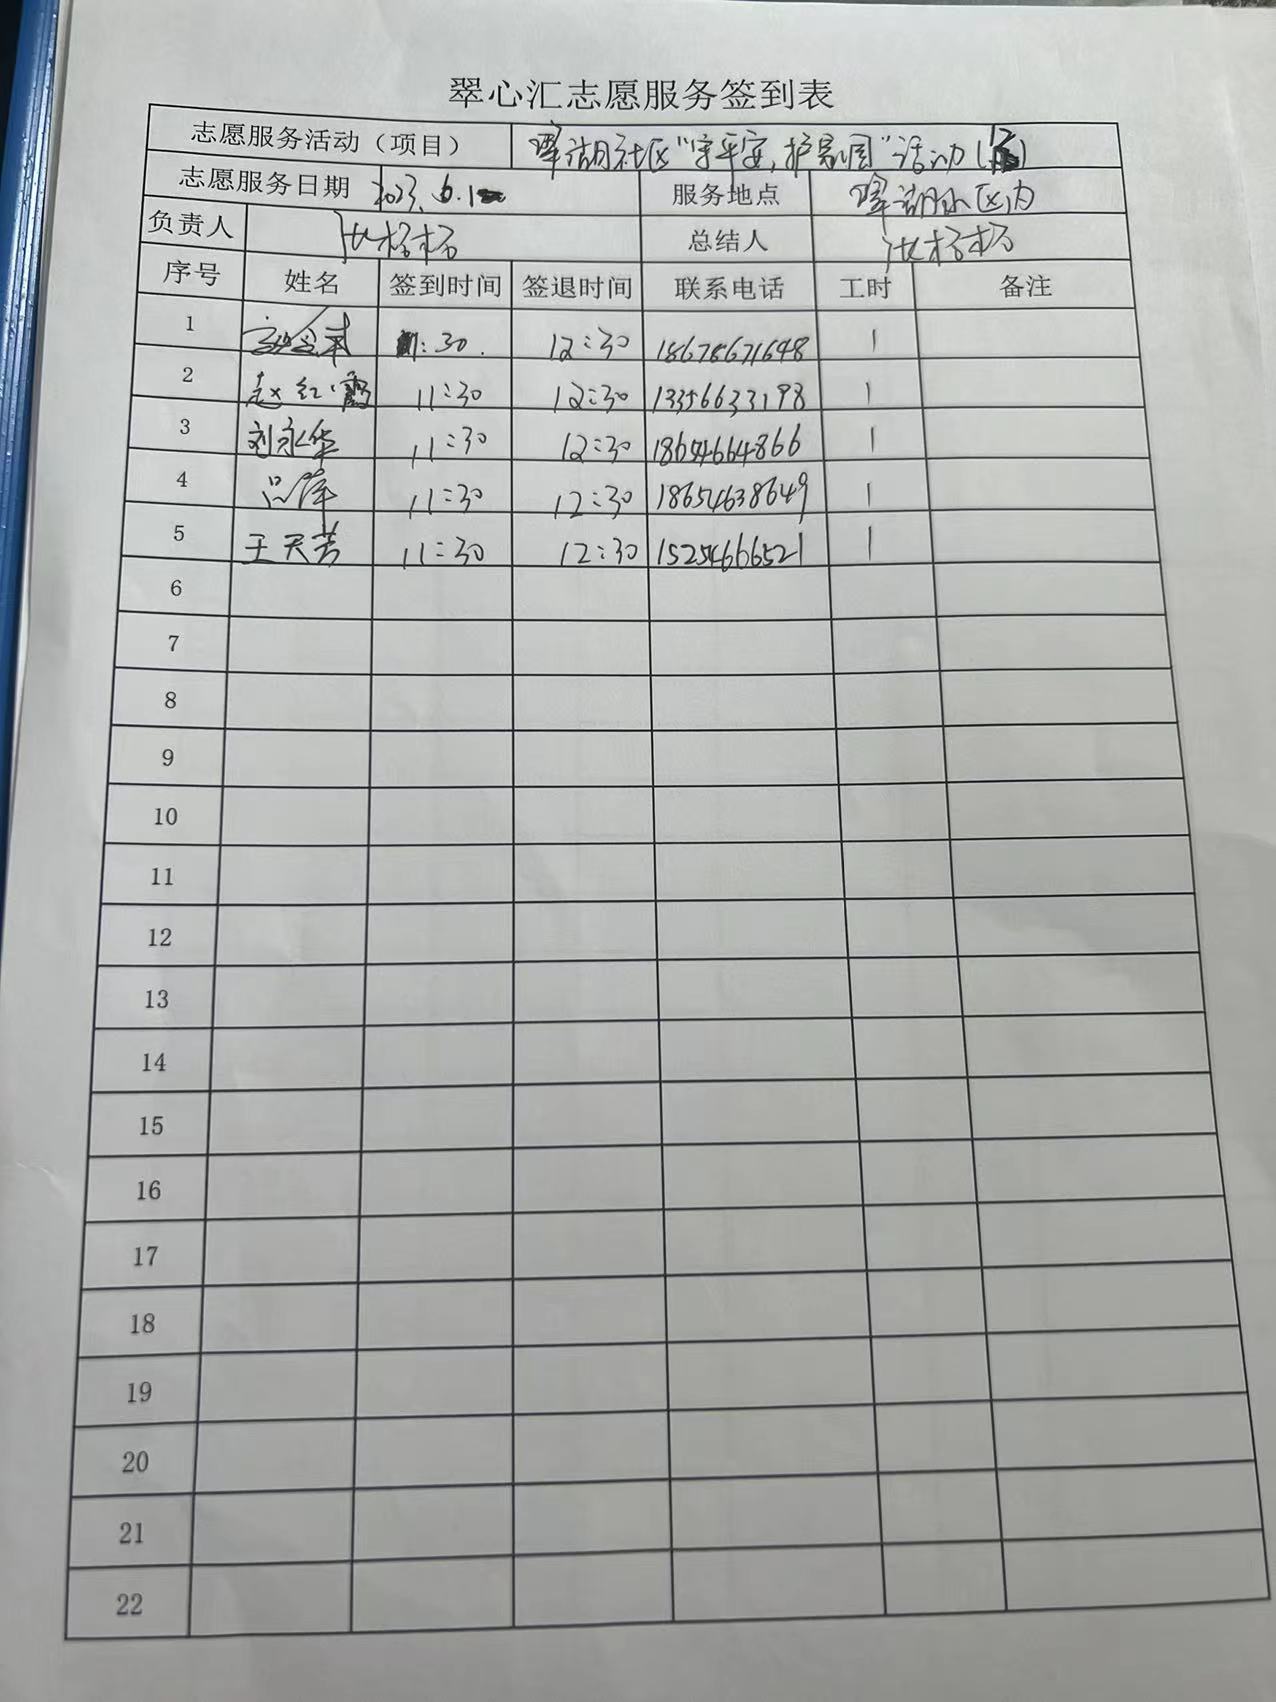 翠心汇志愿服务签到表
志愿服务活动（项目） 翠湖社区“守平安，护家园”活动
志愿服务日期 2023.6.1 服务地点 翠湖小区内
负责人 总结人
序号 姓名 签到时间 签退时间 联系电话 工时 备注
1 11:30. 12:30 18678671648 1
2 赵红霞 11:30 12:30 13356633198 1
3 刘永华 11:30 12:30 18654664866 1
4 吕萍 11:30 12:30 18654638649 1
5 王天芳 11:30 12:30 15254666521 1
6
7
8
9
10
11
12
13
14
15
16
17
18
19
20
21
22